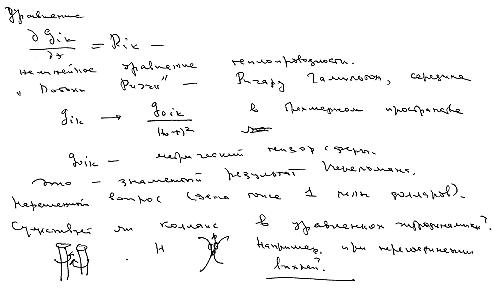 Уравнение
∂g_ik/∂t = R_ik —
нелинейное уравнение теплопроводности.
"Потоки Риччи" — Ричард Гамильтон, середина
g_ik → g_0ik/(t_0 - t)^2 в трехмерном пространстве
g_0ik — метрический тензор сферы.
Это — знаменитый результат Перельмана.
Нерешенный вопрос (цена тоже 1 млн долларов).
Существует ли коллапс в уравнениях гидродинамики?
Например, при пересоединении
вихрей?